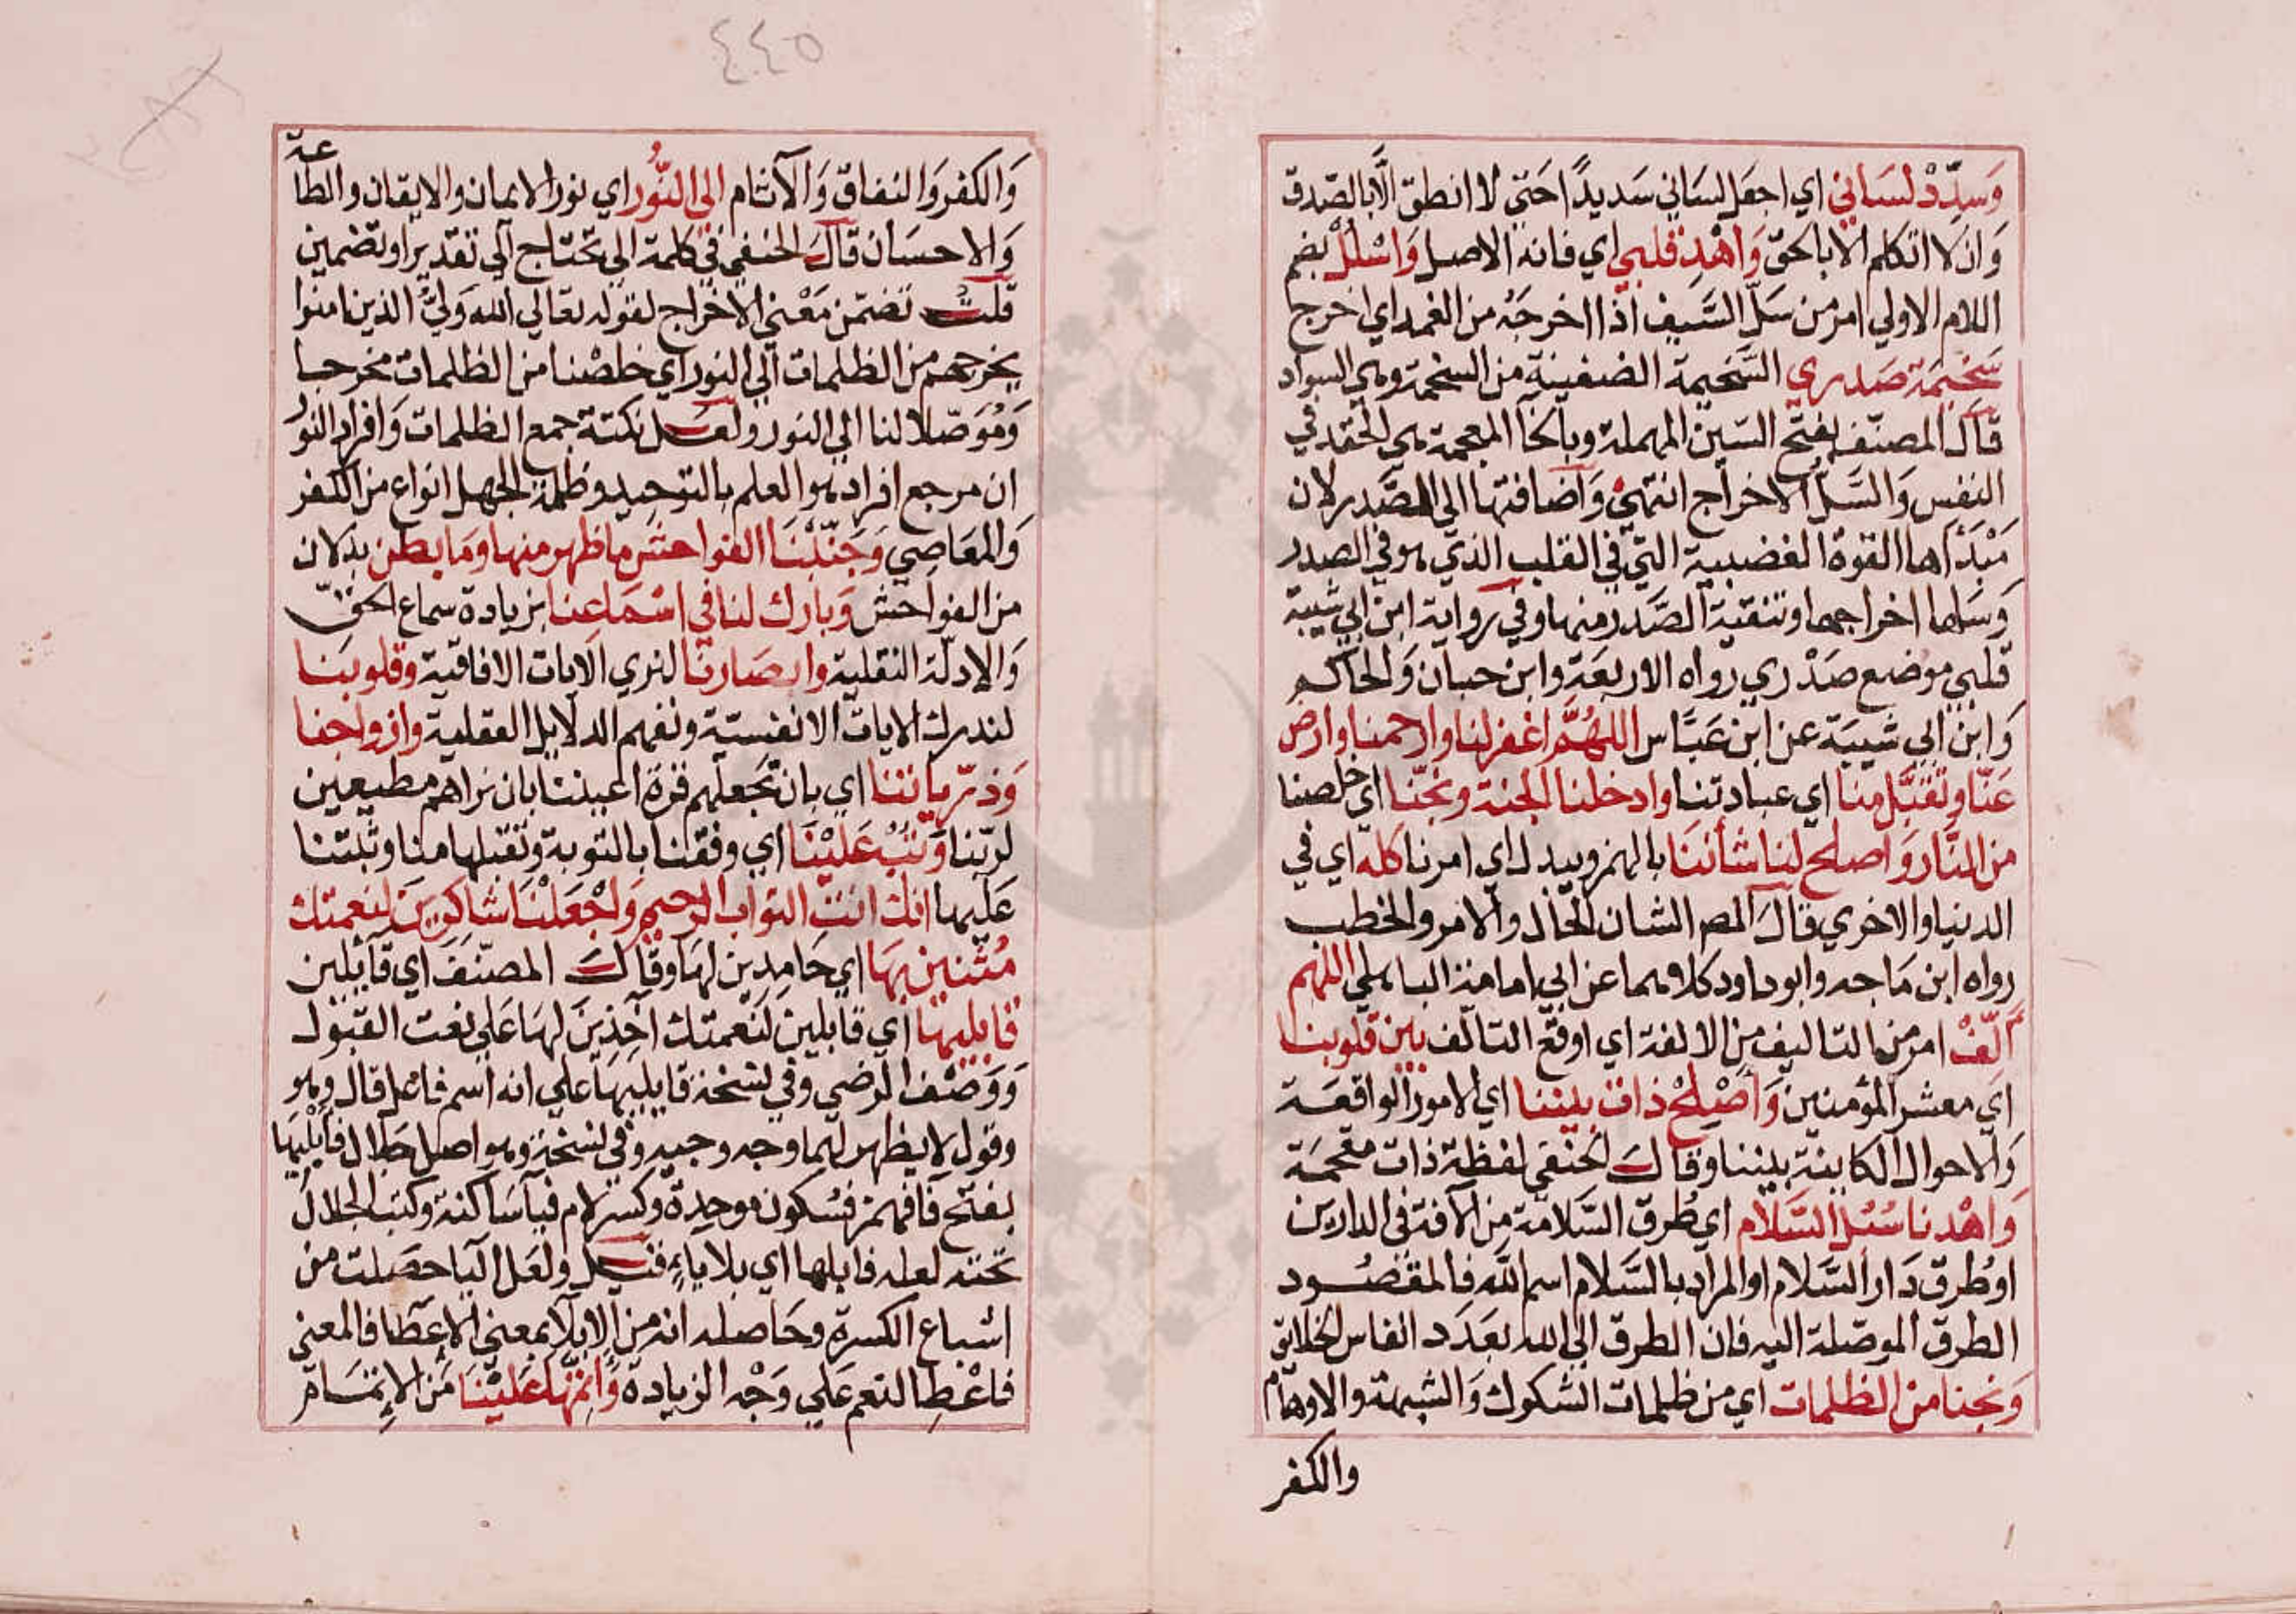 وَسدِّدْ لسَاني اي اجعَل لسَاني سَديدًا حَتي لا انطق الَّا بالصّدق
وَان لا اتكلم الا بالحقّ وَاهْدِ قلبي اي فانه الاصل وَاسْلُلْ بضم
اللام الاولي امر من سَلّ السَّيف اذا اخرجَه من الغمد اي اخرج
سَخيمَة صَدري السَّخيمة الضغينية من السخمة وهي السواد
قاَل المصنّف بفتح السّين المهملة وبالخا المعجمة هي الحقد في
النفس وَالسَّلّ الاخراج انتهيٰ وَاضافتها الي الصَّدر لان
مَبْدَأها القوة الغضبية التي في القلب الذي هو في الصدر
وَسَلها اخراجها وتنقية الصَّدر منها وفي رواية ابن ابي شيبة
قلبي موضع صَدْري رواه الاربعَة وابن حبان وَالحاكم
وَابن ابي شيبَة عن ابن عَبَّاس اللهُمَّ اغفر لنا وارحمنا وارض
عَنّا وتَقبَّل منا اي عبادتنا وادخلنا الجنة ونجّنا اي خلصنا
من النَّار وَاصلح لنا شأننَا بالهمز ويبدل اي امرنا كله اي في
الدنيا والاخري قاَل المص الشان الحال والامر والخطب
رواه ابن مَاجه وابو داود كلاهما عن ابي امامة الباهلي اللهم
اَلّفْ امر من التاليف من الالفة اي اوقع التالّف بين قلوبنا
اي معشر المؤمنين وَاصْلِحْ ذات بيننا اي الامور الواقعَة
وَالاحوال الكاينة بيننا وقاَل الحنفي لفظة ذات مقحمَة
وَاهْدنا سُبُل السَّلَام اي طُرق السَّلامَة من الافة في الدارين
او طُرق دَار السَّلام او المراد بالسَّلام اسم اللَّه فالمقصُود
الطرق الموصّلة اليه فان الطرق الي الله بعَدَد انفاس الخلايق
وَنجنا من الظلمات اي من ظلمات الشكوك وَالشبهة والاوهام
والكفر
٤٤٥
وَالكفر وَالنفاق وَالآثام الي النُّور اي نور الايمان والايقان والطاعة
وَالاحسَان قاَل الحنفي في كلمة الي تحتاج الي تقدير او تضمين
قلتُ تضمّن مَعْني الاخراج لقوله تعَالي الله وَليُّ الذين امنوا
يخرجهم من الظلمات الي النور اي خلصْنا من الظلمات مخرجا
وَمُوَصّلا لنا الي النور ولعَل نكتة جمع الظلمات وَافراد النور
ان مرجع افراده هو العلم بالتوحيد وظلمة الجهل انواع من الكفر
وَالمعَاصِي وَجَنّبْنَا الفواحشَ ما ظهر منها ومَا بطن بدلان
من الفواحش وَبارك لنا في اسْمَاعنا بزيادة سماع الحقّ
وَالادلّة النقلية وابصَارنَا لنري الايات الافاقية وقلوبنَا
لندرك الايات الانفسية ونفهم الدلايل العقلية وازواجنا
وَذرّياتنا اي بان تجَعلهم قرة اعيننا بان نراهم مطيعين
لربّنا وَتُبْ عَليْنَا اي وفقنا بالتوبة وتقبلها منا وثبتنا
عَليها انك انت التواب الرحيم وَاجْعَلْنَا شاكرينَ لنعمتك
مُثنين بهَا اي حَامدين لهَا وقاَل المصنّف اي قايلين
قابليها اي قابلين لنعمتك اَخِذِينَ لهَا عَلي نعت القبول
وَوَصْف الرضي وفي نسخة قايليهَا علي انه اسم فاعل قال وهو
وقول لا يظهر لهما وجه وجيه وفي نسخة وهو اصل جلال فأبْلِيهَا
بفتح فا فهمز فسُكون موحدة وكسر لام فيا سَاكنة وكتب الجلال
تحته لعله فابلها اي بلا ياء قيل ولعَل اليا حصَلت من
اشباع الكسرة وحَاصله انه من الابلا بمعني الاعطا فالمعني
فاعْطِ النعم عَلي وَجْه الزيادة وَاتِمّهَا عَليْنَا من الاِتمَام